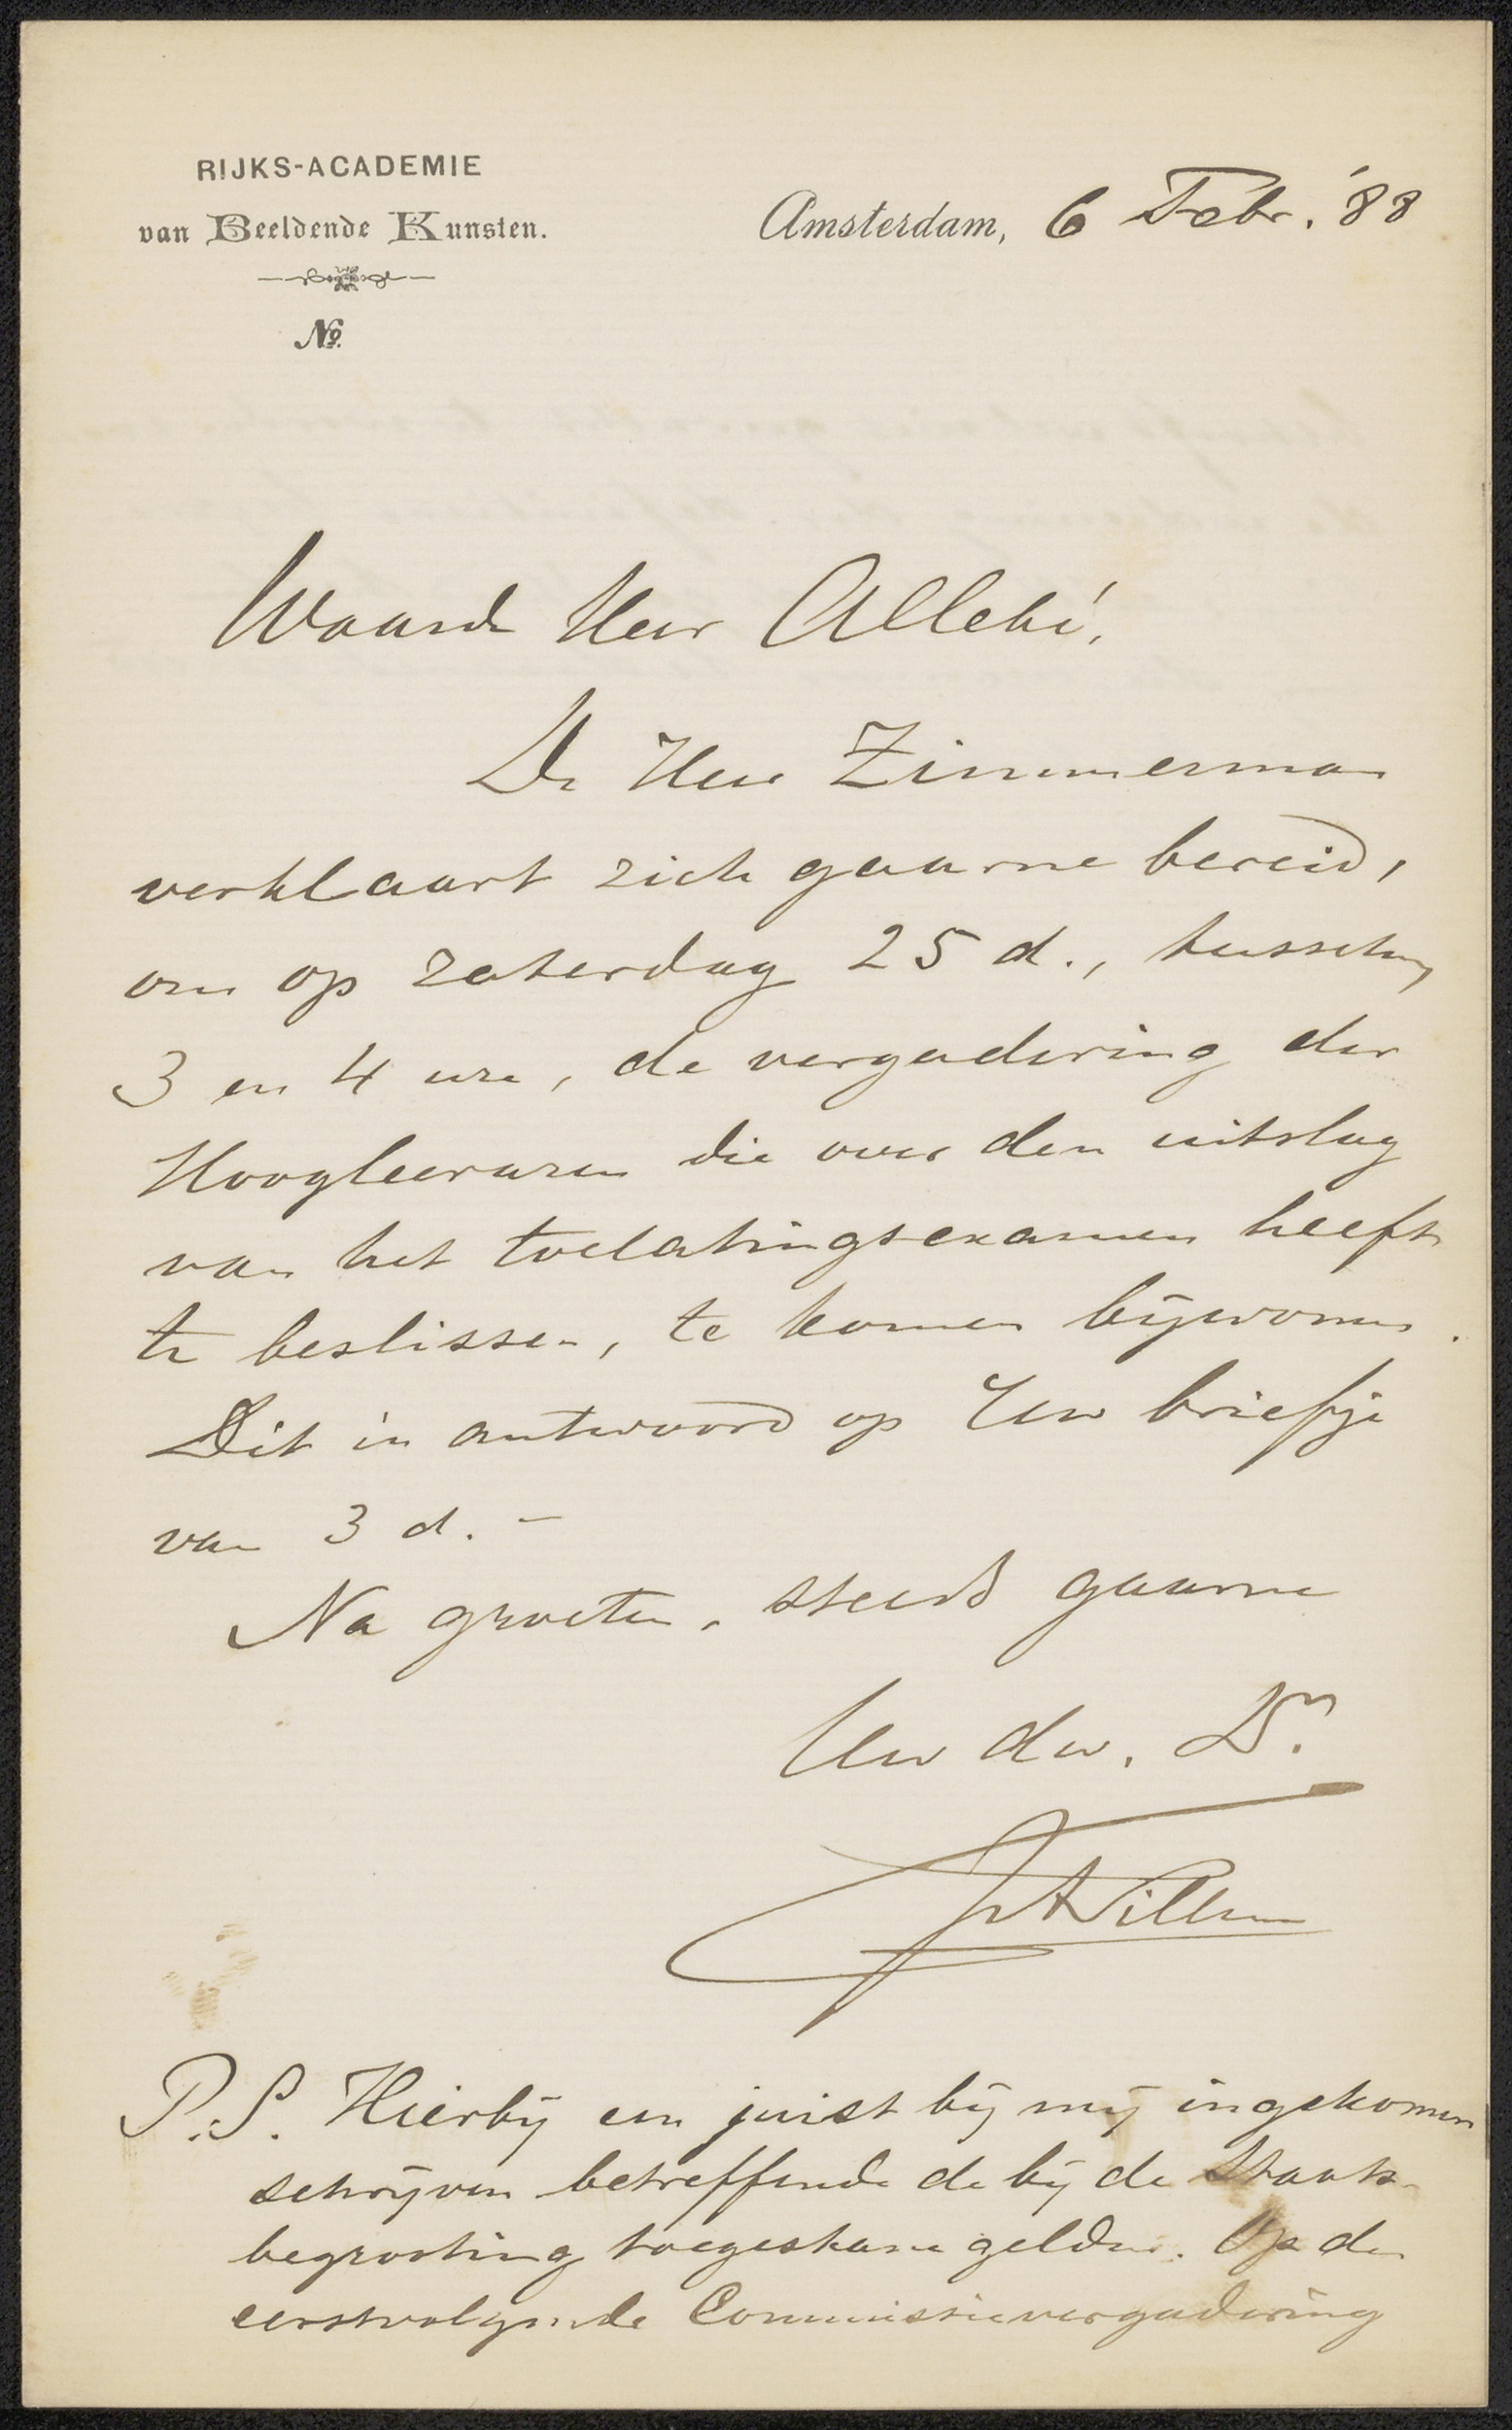 RIJKS-ACADEMIE
van Beeldende Kunsten.
No.
Amsterdam, 6 Febr. '88
Waarde Heer Allebé,
De Heer Zimmerman
verklaart zich gaarne bereid,
om op zaterdag 25 d., tusschen
3 en 4 ure, de vergadering der
Hoogleeraren die over den uitslag
van het toelatingsexamen heeft
te beslissen, te komen bijwonen.
Dit in antwoord op Uw briefje
van 3 d. -
Na groeten, steeds gaarne
Uw dw. Dr.
P.S. Hierbij een juist bij mij ingekomen
schrijven betreffende de bij de Staats-
begrooting toegestane gelden. Op de
eerstvolgende Commissievergadering